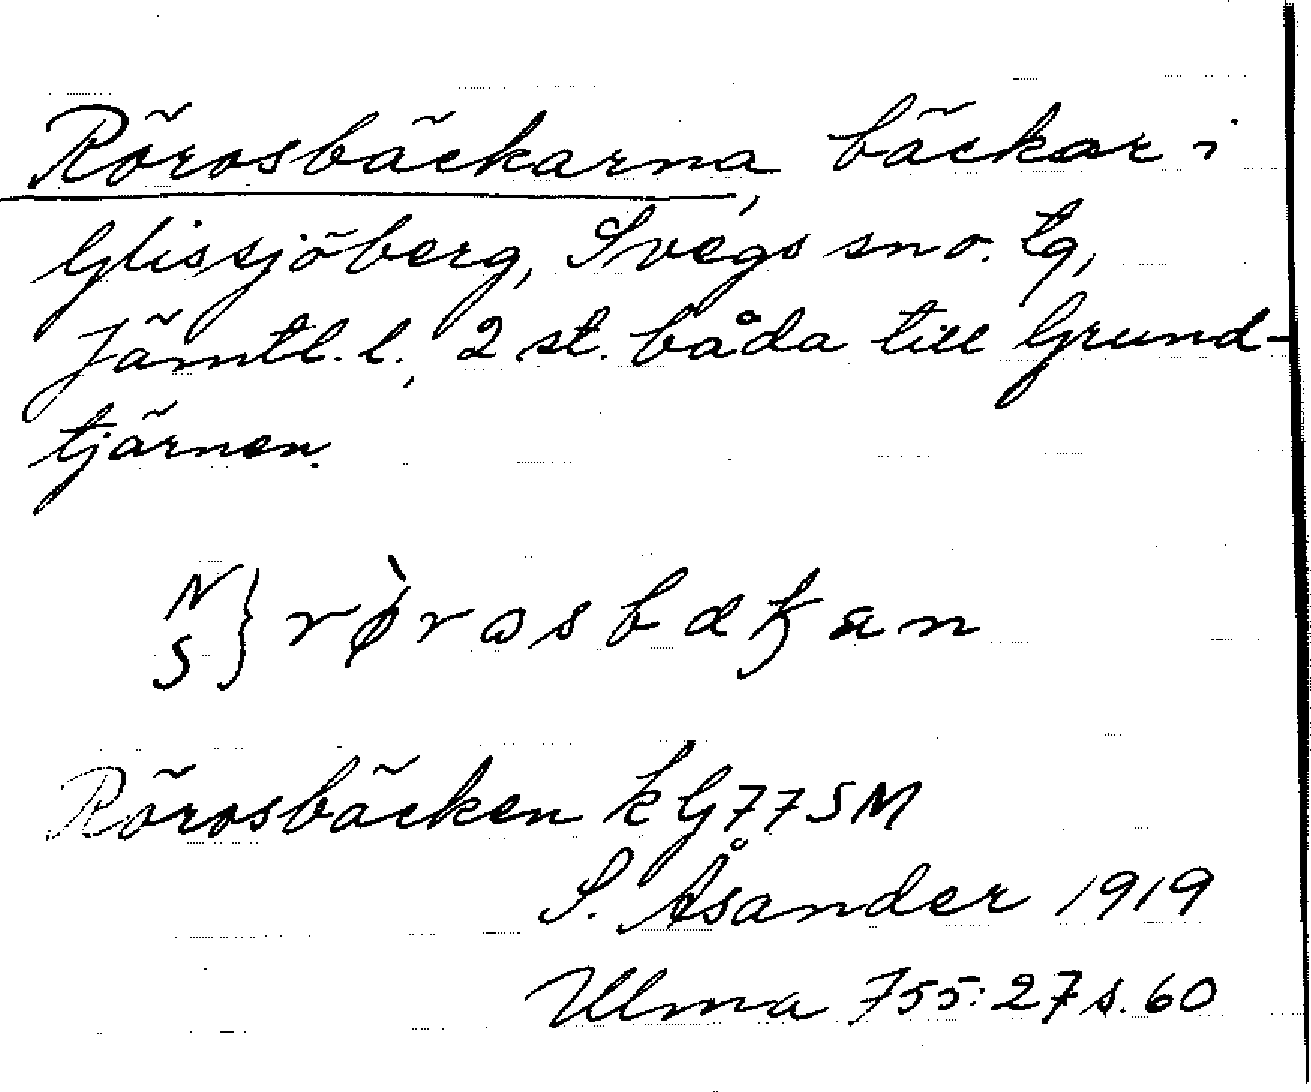 Rörosbäckarna, bäckar i
Glissjöberg, Svegs sn o. tg,
Jämtl. l., 2 st. båda till Grund-
tjärnen.
N
S } rø̀rasbækan
Rörosbäcken k G77SM
S. Åsander 1919
Ulma 755:27 s. 60